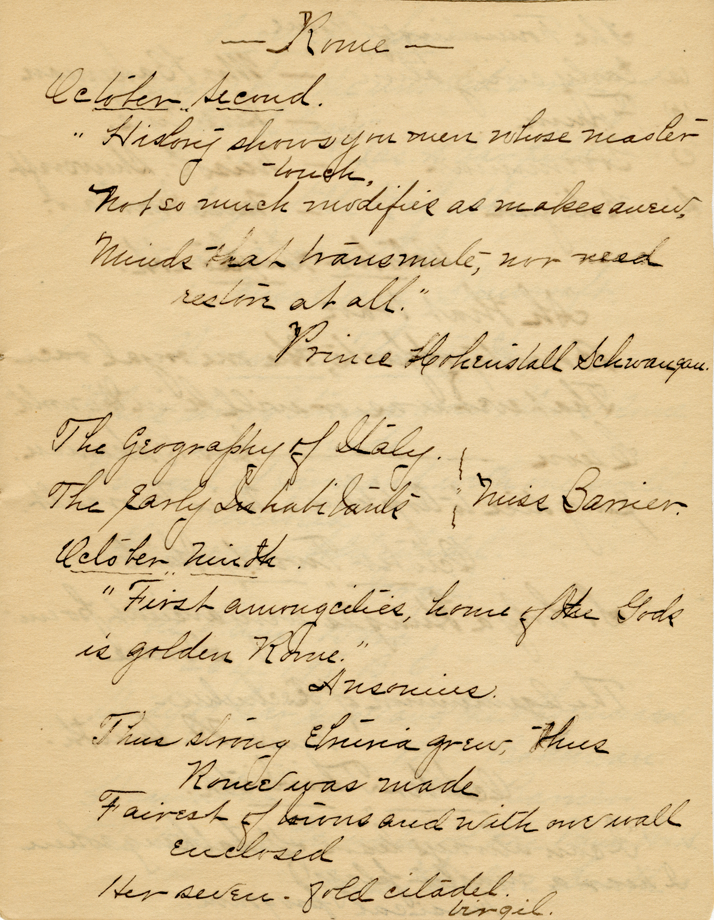 — Rome —
October Second.
" History shows you men whose master
touch,
Not so much modifies as makes anew,
Minds that transmute, nor need
restore at all."
Prince Hohenstall Schwangau.
The Geography of Italy.
The Early Inhabitants } Miss Barrier.
October Ninth.
" First among cities, home of the Gods
is golden Rome."
Ansonius.
Thus strong Etruria grew, thus
Rome was made
Fairest of towns and with one wall
enclosed
Her seven-fold citadel.
Virgil.